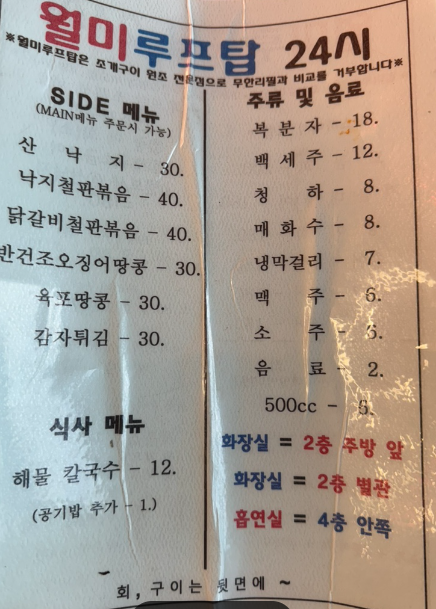 월미루프탑 24시
※월미루프탑은 조개구이 원조 전문점으로 무한리필과 비교를 거부합니다※
SIDE 메뉴
(MAIN메뉴 주문시 가능)
산 낙 지 - 30.
낙지철판볶음 - 40.
닭갈비철판볶음 - 40.
반건조오징어땅콩 - 30.
육포땅콩 - 30.
감자튀김 - 30.
식사 메뉴
해물 칼국수 - 12.
(공기밥 추가 - 1.)
주류 및 음료
복 분 자 - 18.
백 세 주 - 12.
청 하 - 8.
매 화 수 - 8.
냉막걸리 - 7.
맥 주 - 6.
소 주 - 6.
음 료 - 2.
500cc - 6.
화장실 = 2층 주방 앞
화장실 = 2층 별관
흡연실 = 4층 안쪽
~ 회, 구이는 뒷면에 ~